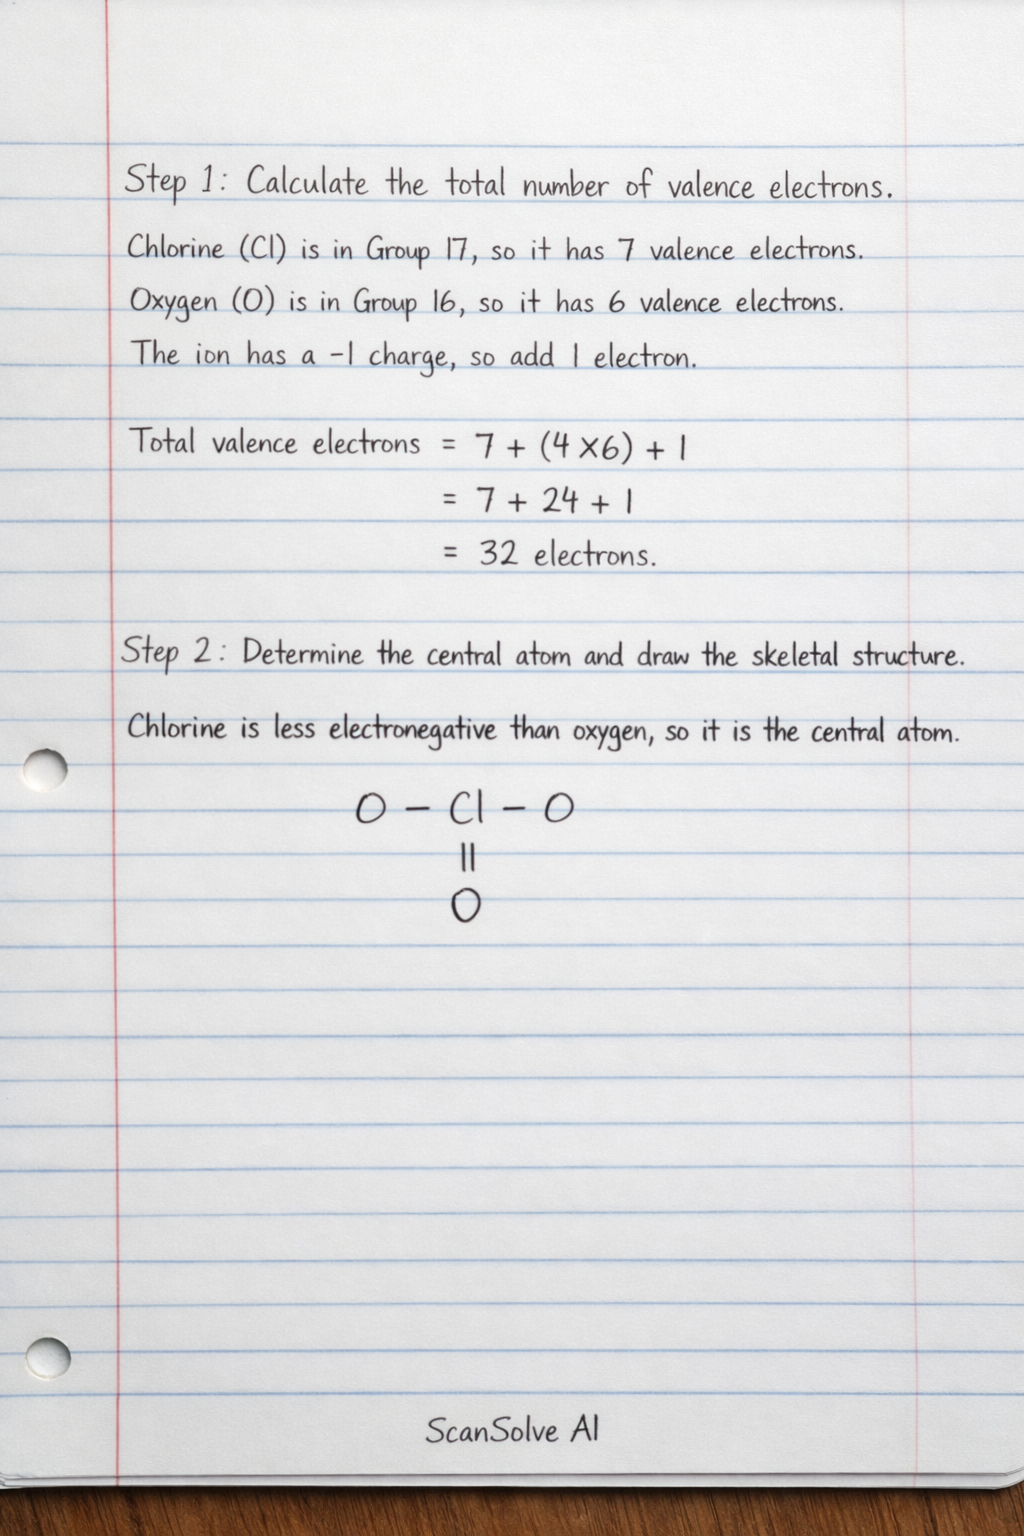 Step 1: Calculate the total number of valence electrons.
Chlorine (Cl) is in Group 17, so it has 7 valence electrons.
Oxygen (O) is in Group 16, so it has 6 valence electrons.
The ion has a -1 charge, so add 1 electron.
Total valence electrons = 7 + (4×6) + 1
= 7 + 24 + 1
= 32 electrons.
Step 2: Determine the central atom and draw the skeletal structure.
Chlorine is less electronegative than oxygen, so it is the central atom.
O – Cl – O
||
O
ScanSolve AI